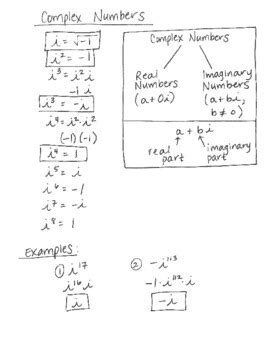 Complex Numbers
i = √-1
i² = -1
i³ = i²·i
-1·i
i³ = -i
i⁴ = i²·i²
(-1)(-1)
i⁴ = 1
i⁵ = i
i⁶ = -1
i⁷ = -i
i⁸ = 1
Complex Numbers
Real Numbers (a+0i)
Imaginary Numbers (a+bi, b≠0)
a + bi
real part
imaginary part
Examples:
① i¹⁷
i¹⁶·i
i
② -i¹¹³
-1·i¹¹²·i
-i